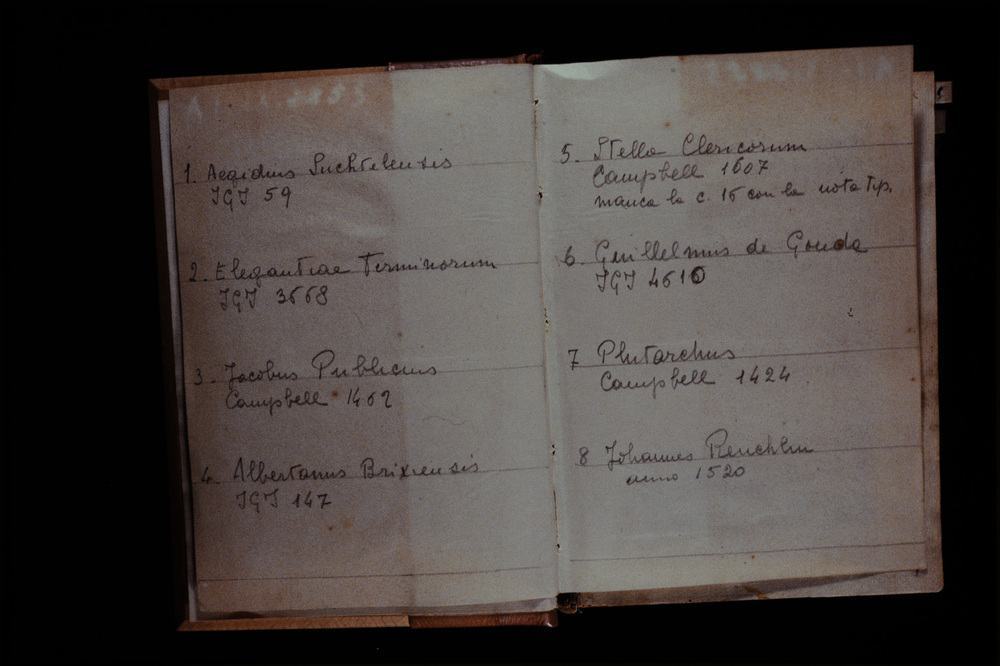 1. Aegidius Suchtelensis
IGI 59
2. Elegantiae Terminorum
IGI 3668
3. Jacobus Publicius
Campbell 1462
4. Albertanus Brixiensis
IGI 147
5. Stella Clericorum
Campbell 1607
manca la c. 16 con la nota tip.
6. Guillelmus de Gouda
IGI 4610
7 Plutarchus
Campbell 1424
8 Johannes Reuchlin
anno 1520